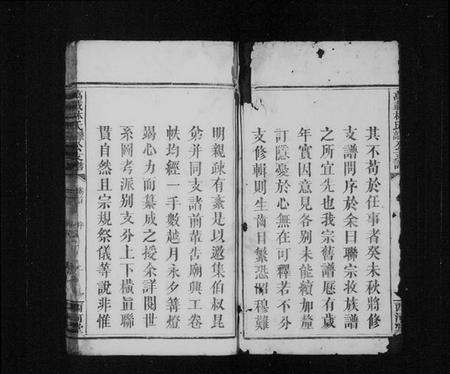 其不苟於任事者癸未秋將修
支譜問序於余曰聯宗收族譜
之所宜先也我宗舊譜歷有歲
年實因意見各别未能續加釐
訂隱憂於心無在可釋若不分
支修輯則生齒日繁恐昭穆難
明親疎有紊是以邀集伯叔昆
弟并同支諸前輩告廟興工卷
帙均經一手數越月永夕篝燈
竭心力而纂成之授余詳閱世
系圖考派别支分上下橫直聯
貫自然且宗規祭儀等說非惟
萬載林氏
公支譜
卷首
西河堂